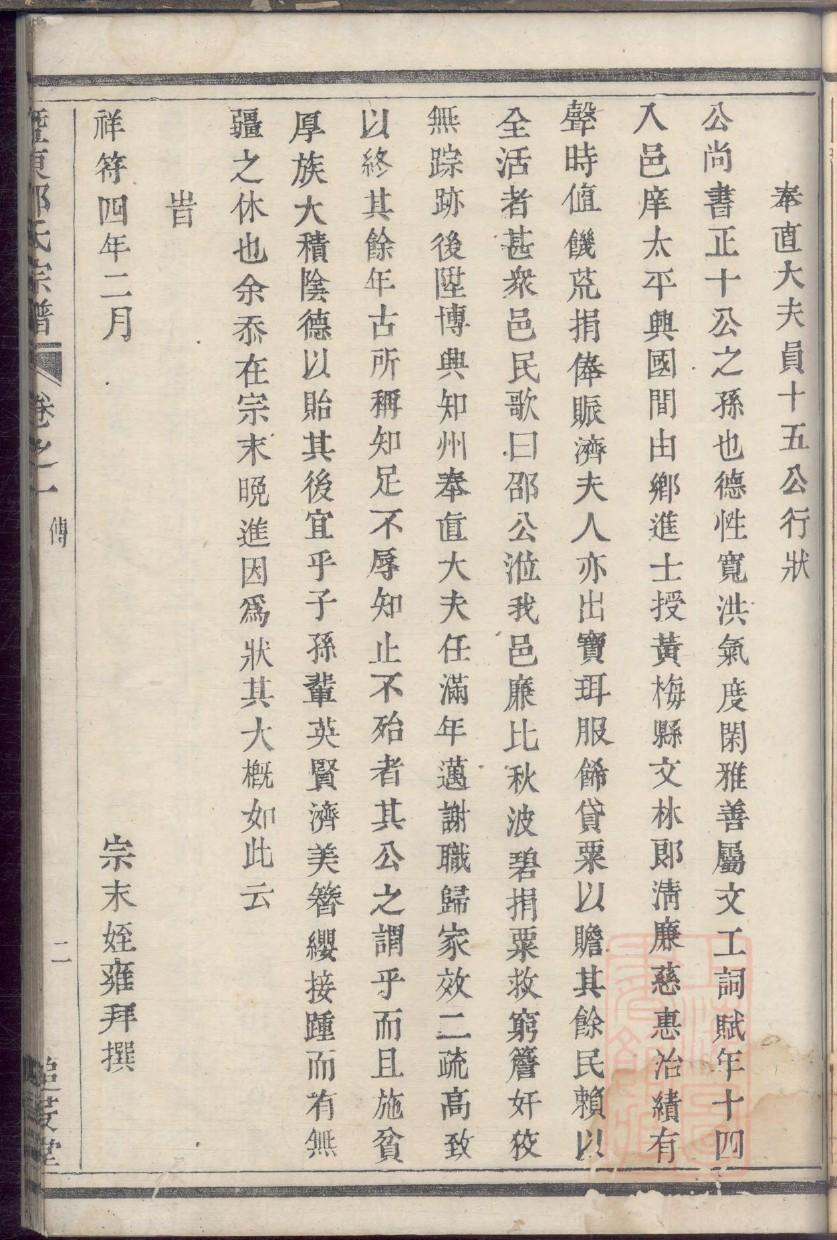 奉直大夫員十五公行狀
公尚書正十公之孫也德性寬洪氣度閑雅善屬文工詞賦年十四
入邑庠太平興國間由鄉進士授黃梅縣文林郎清廉慈惠治績有
聲時值饑荒捐俸賑濟夫人亦出寶珥服餙貸粟以贍其餘民賴以
全活者甚衆邑民歌曰邵公涖我邑廉比秋波碧捐粟救窮簷奸狡
無踪跡後陞博興知州奉直大夫任滿年邁謝職歸家效二疏高致
以終其餘年古所稱知足不辱知止不殆者其公之謂乎而且施貧
厚族大積陰德以貽其後宜乎子孫輩英賢濟美簪纓接踵而有無
疆之休也余忝在宗末晩進因爲狀其大槪如此云
旹
祥符四年二月
宗末姪雍拜撰
邵氏宗譜
卷之一
傳
二